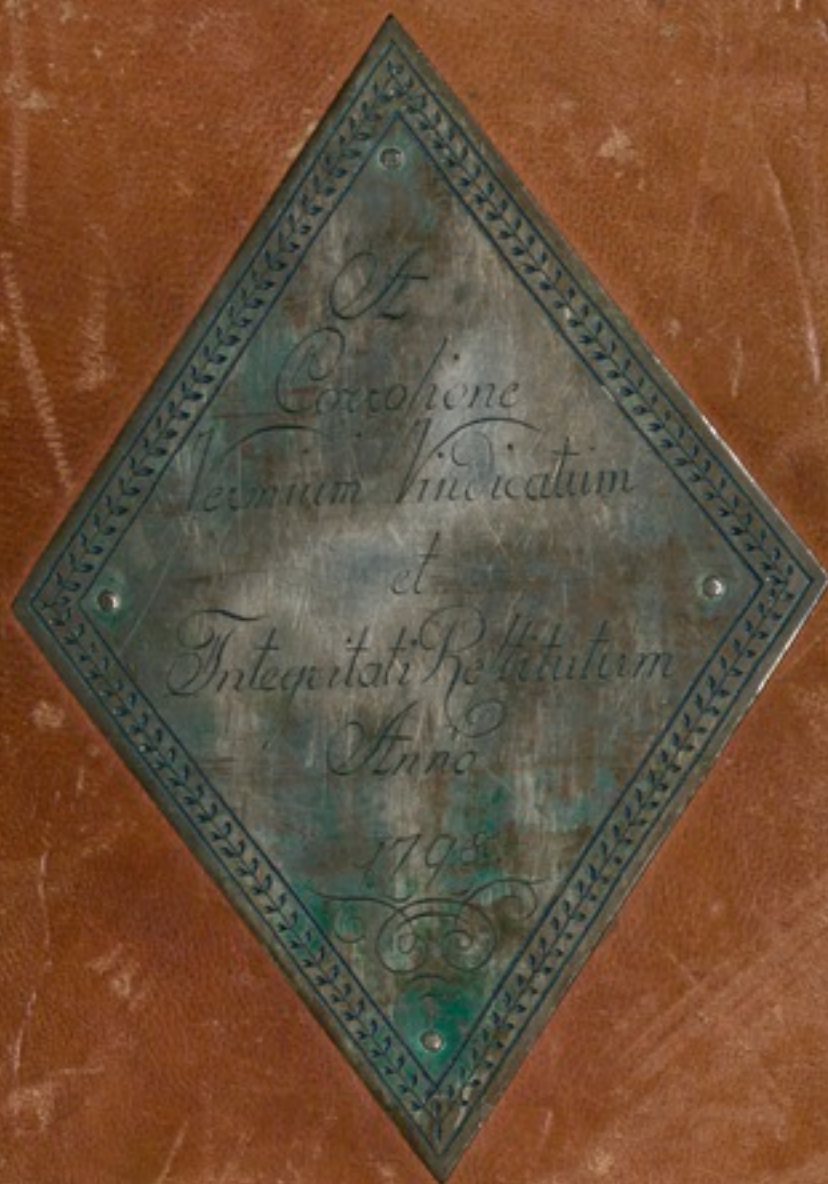 A
Corrosione
Vermium Vindicatum
et
Integritati Restitutum
Anno
1798